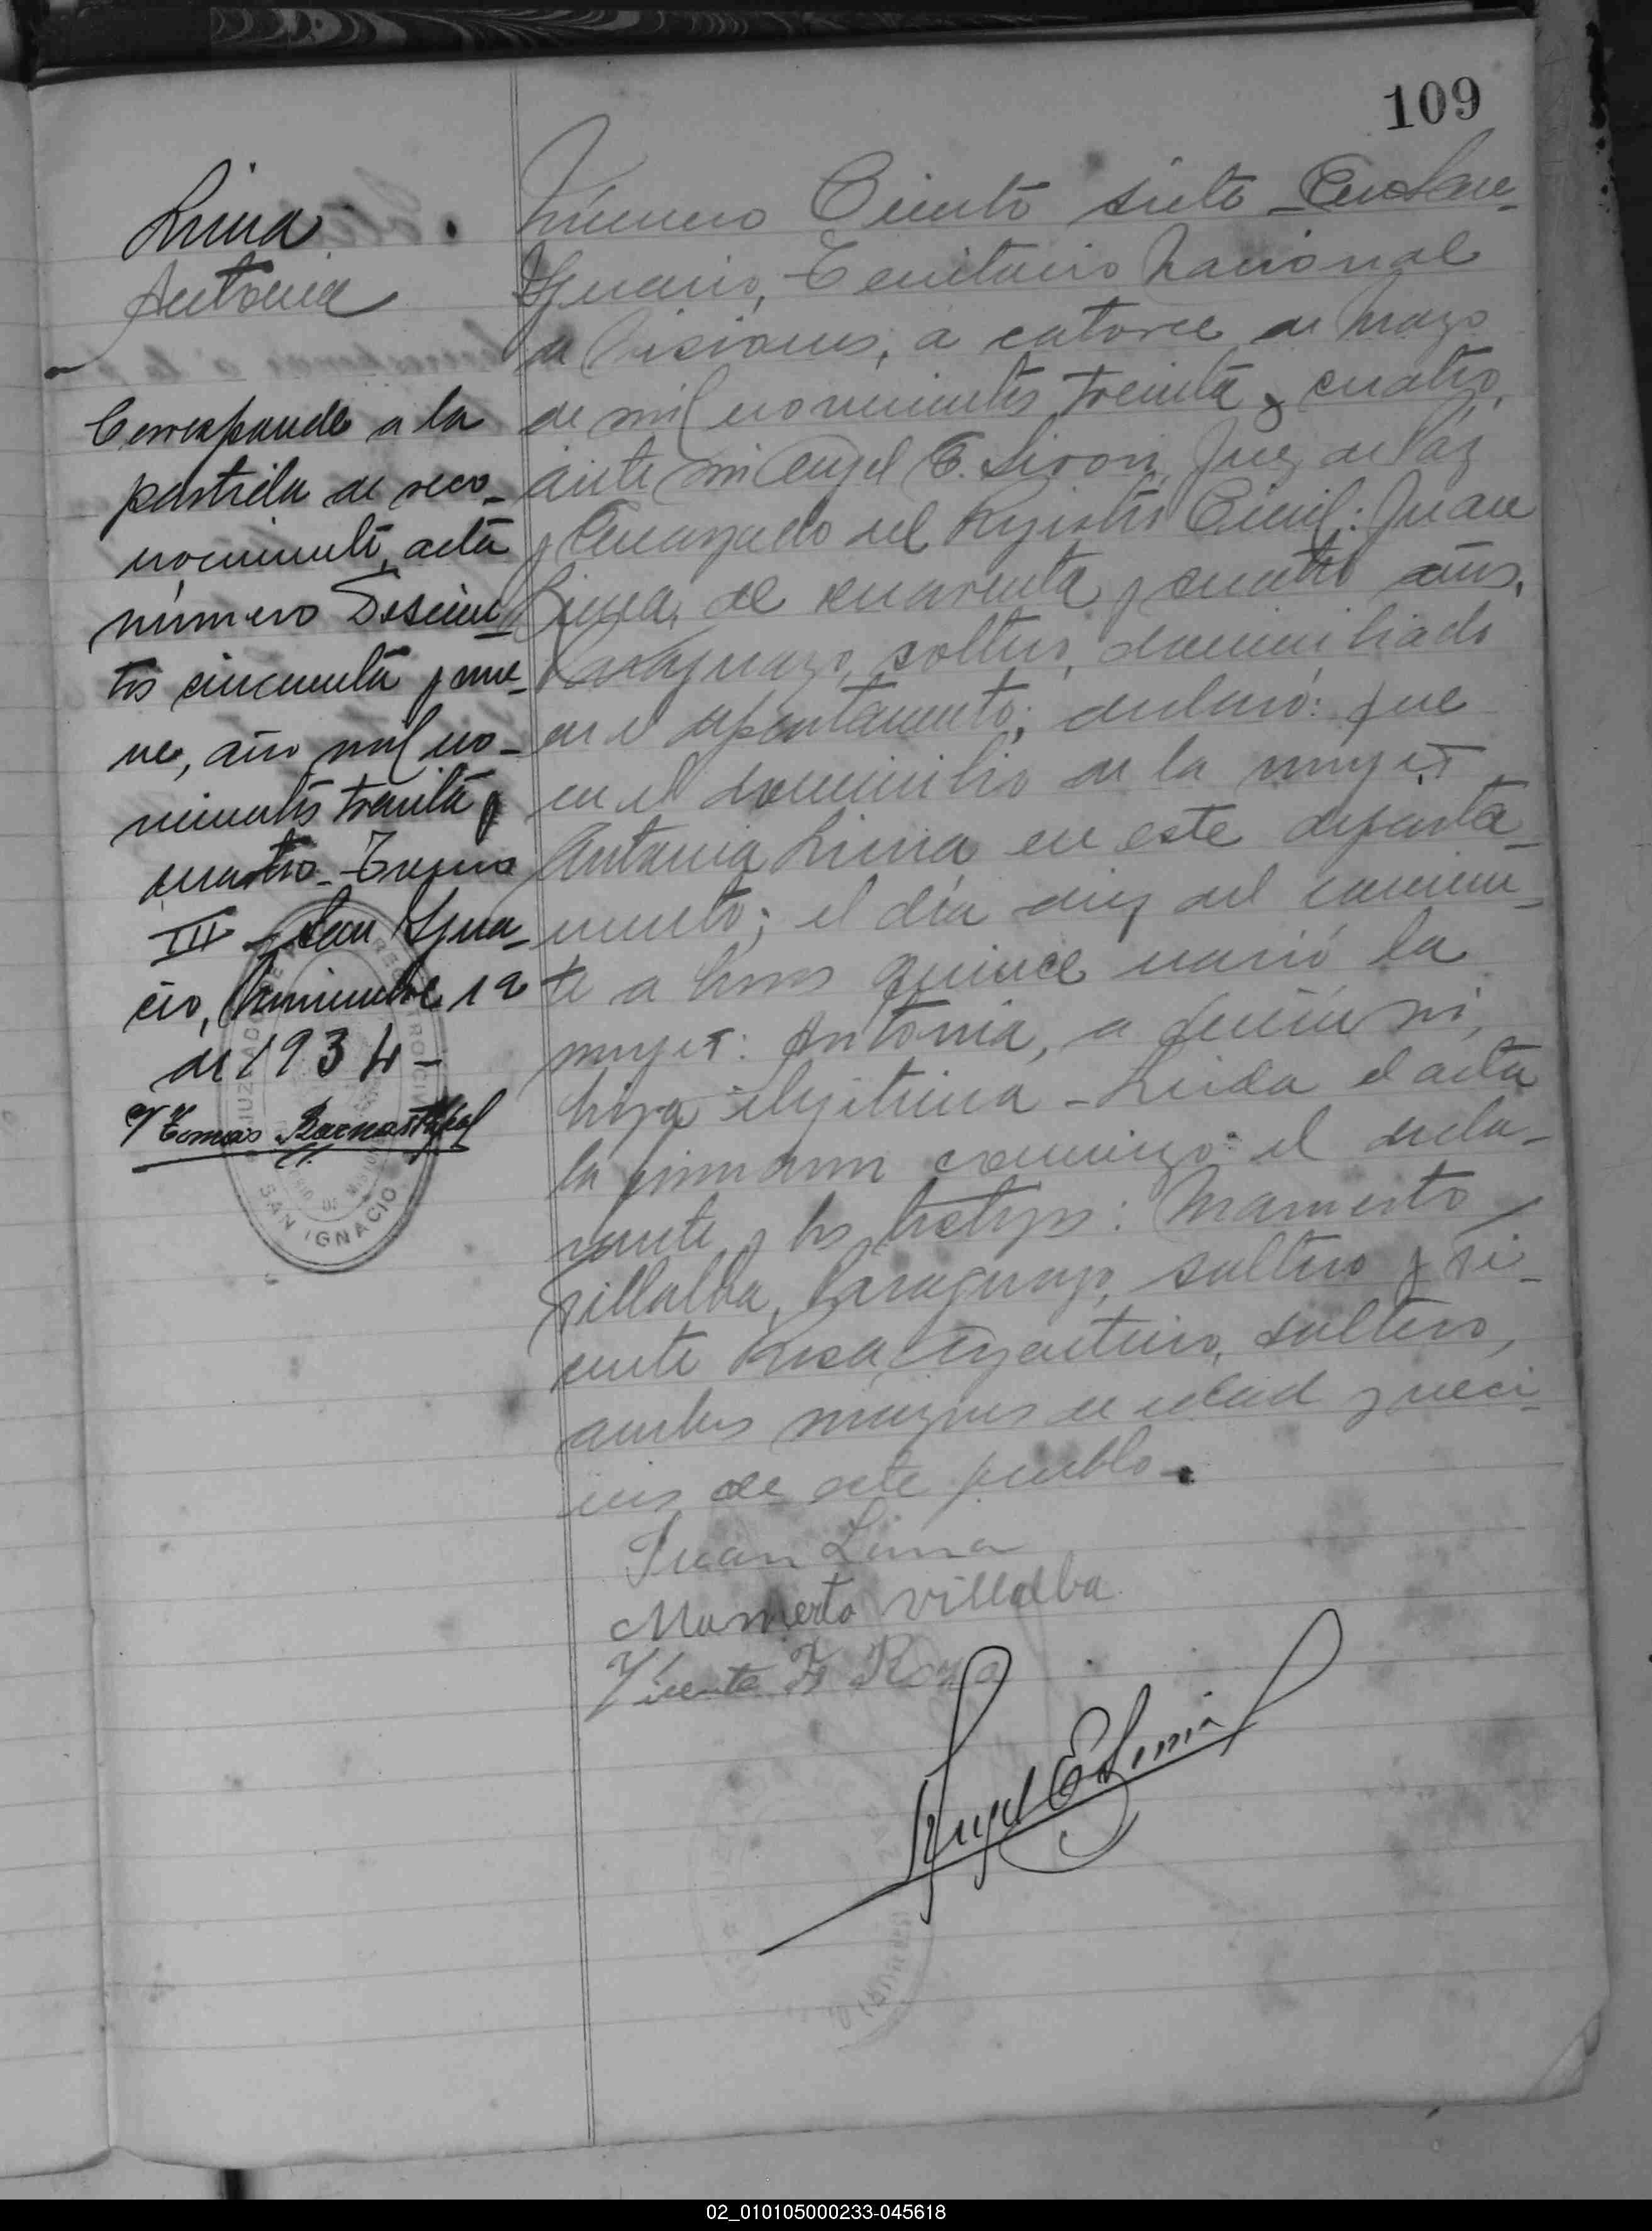 109
Lima
Antonia
Corresponde a la
partida de reco-
nocimiento, acta
número Doscien-
tos cincuenta y nue-
ve, año mil no-
vecientos treinta y
cuatro - Tomo
III - San Igna-
cio, Noviembre 12
de 1934 -
Tomás
SAN IGNACIO
Número Ciento siete - En San
Ignacio, Territorio Nacional
de Misiones, a catorce de Mayo
de mil novecientos treinta y cuatro,
ante mi Angel E. Juez de Páz
y Encargado del Registro Civil: Juan
Lima, de cuarenta y cuatro años,
Paraguayo, soltero, domiciliado
en el departamento; declaró: que
en el domicilio de la mujer
Antonia Lima, en este departa-
mento; el día diez del corrien-
te a horas quince nació la
mujer: Antonia, a quién vi,
hija ilegitima - Leida el acta
la firmaron conmigo: el decla-
rante y los testigos: Mamerto
Villalba, Paraguayo, soltero y Vi-
cente Rosa, Argentino, soltero,
ambos mayores de edad y veci-
nos de este pueblo -
Juan Lima
Mamerto Villalba
Vicente F Rosa
Angel E
02_010105000233-045618